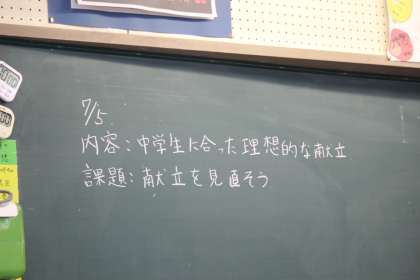 7/5
内容:中学生に合った理想的な献立
課題:献立を見直そう